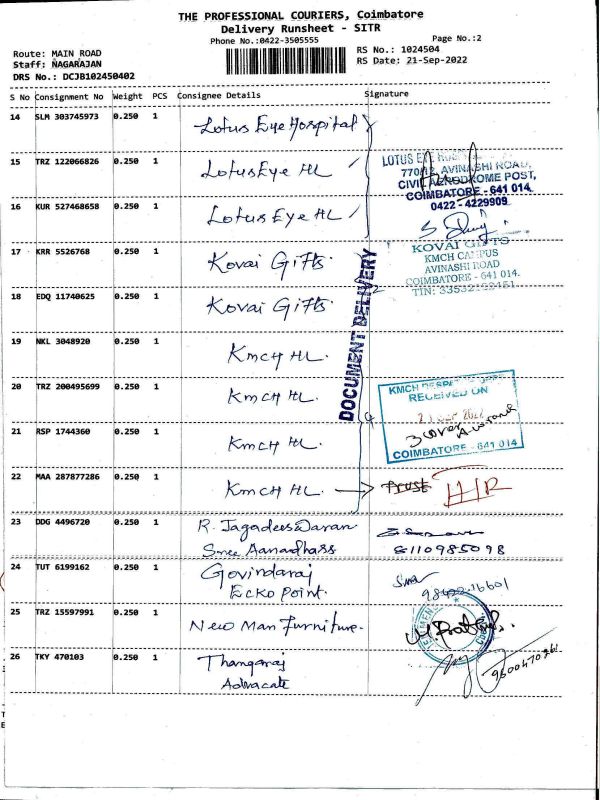 THE PROFESSIONAL COURIERS, Coimbatore
Delivery Runsheet - SITR
Phone No.:0422-3505555
Page No.:2
Route: MAIN ROAD
RS No.: 1024504
Staff: NAGARAJAN
RS Date: 21-Sep-2022
DRS No.: DCJB102450402
S No Consignment No Weight PCS Consignee Details Signature
14 SLM 303745973 0.250 1 Lotus Eye Hospital
15 TRZ 122066826 0.250 1 Lotus Eye HL
LOTUS EYE
770/12, AVINASHI ROAD,
CIVIL AERODROME POST,
COIMBATORE - 641 014.
0422 - 4229909
16 KUR 527468658 0.250 1 Lotus Eye HL
17 KRR 5526768 0.250 1 Kovai Gifts
KOVAI GIFTS
KMCH CAMPUS
AVINASHI ROAD
COIMBATORE - 641 014.
TIN: 33532
18 EDQ 11740625 0.250 1 Kovai Gifts
DOCUMENT DELIVERY
19 NKL 3048920 0.250 1 KMCH HL.
20 TRZ 200495699 0.250 1 KMCH HL.
KMCH
RECEIVED ON
21 SEP 2022
3 cover
COIMBATORE - 641 014
21 RSP 1744360 0.250 1 KMCH HL.
22 MAA 287877286 0.250 1 KMCH HL.
23 DDG 4496720 0.250 1 R. Jagadeeswaran
Sree
8110985098
24 TUT 6199162 0.250 1 Govindaraj
Ecko Point.
25 TRZ 15597991 0.250 1 New Man Furniture.
26 TKY 470103 0.250 1 Thangaraj
Advocate